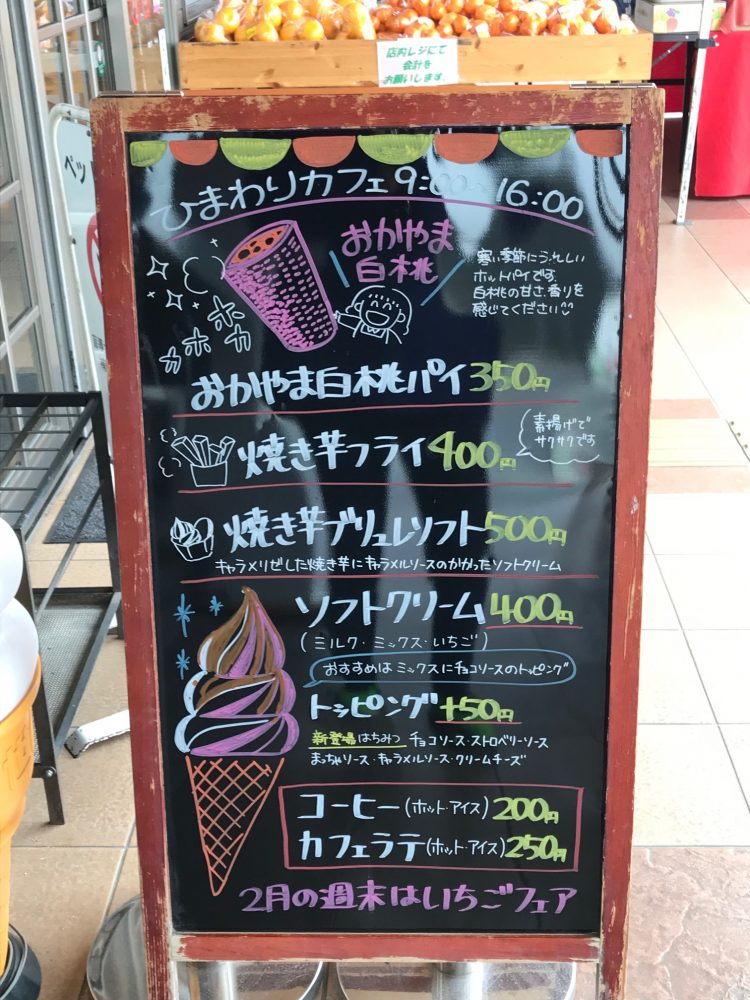 店内レジにて
会計を
お願いします。
ペッ
ひまわりカフェ 9:00~16:00
おかやま
白桃
寒い季節にうれしい
ホットパイです。
白桃の甘さ、香りを
感じてください
ホカホカ
おかやま白桃パイ 350円
焼き芋フライ 400円
素揚げで
サクサクです
焼き芋ブリュレソフト 500円
キャラメリゼした焼き芋にキャラメルソースのかかったソフトクリーム
ソフトクリーム 400円
(ミルク・ミックス・いちご)
おすすめはミックスにチョコソースのトッピング
トッピング +50円
新登場 はちみつ チョコソース・ストロベリーソース
まっちゃソース・キャラメルソース・クリームチーズ
コーヒー(ホット・アイス) 200円
カフェラテ(ホット・アイス) 250円
2月の週末はいちごフェア